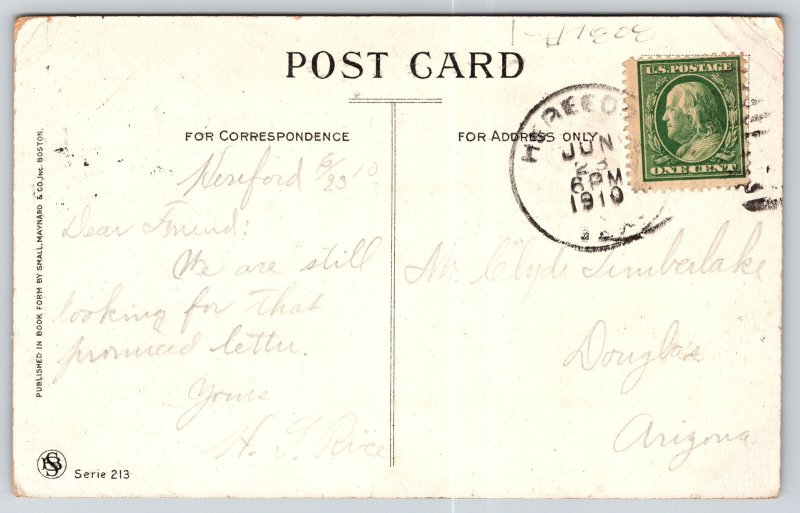 POST CARD
FOR CORRESPONDENCE
FOR ADDRESS ONLY
HEREFORD
JUN
23
6 PM
1910
TEX
U.S. POSTAGE
ONE CENT
Hereford 6/23 10
Dear Friend:
We are still
looking for that
promised letter.
Yours
H. S. Rice
Mr. Clyde Timberlake
Douglas
Arizona
PUBLISHED IN BOOK FORM BY SMALL, MAYNARD & CO. INC. BOSTON.
Serie 213